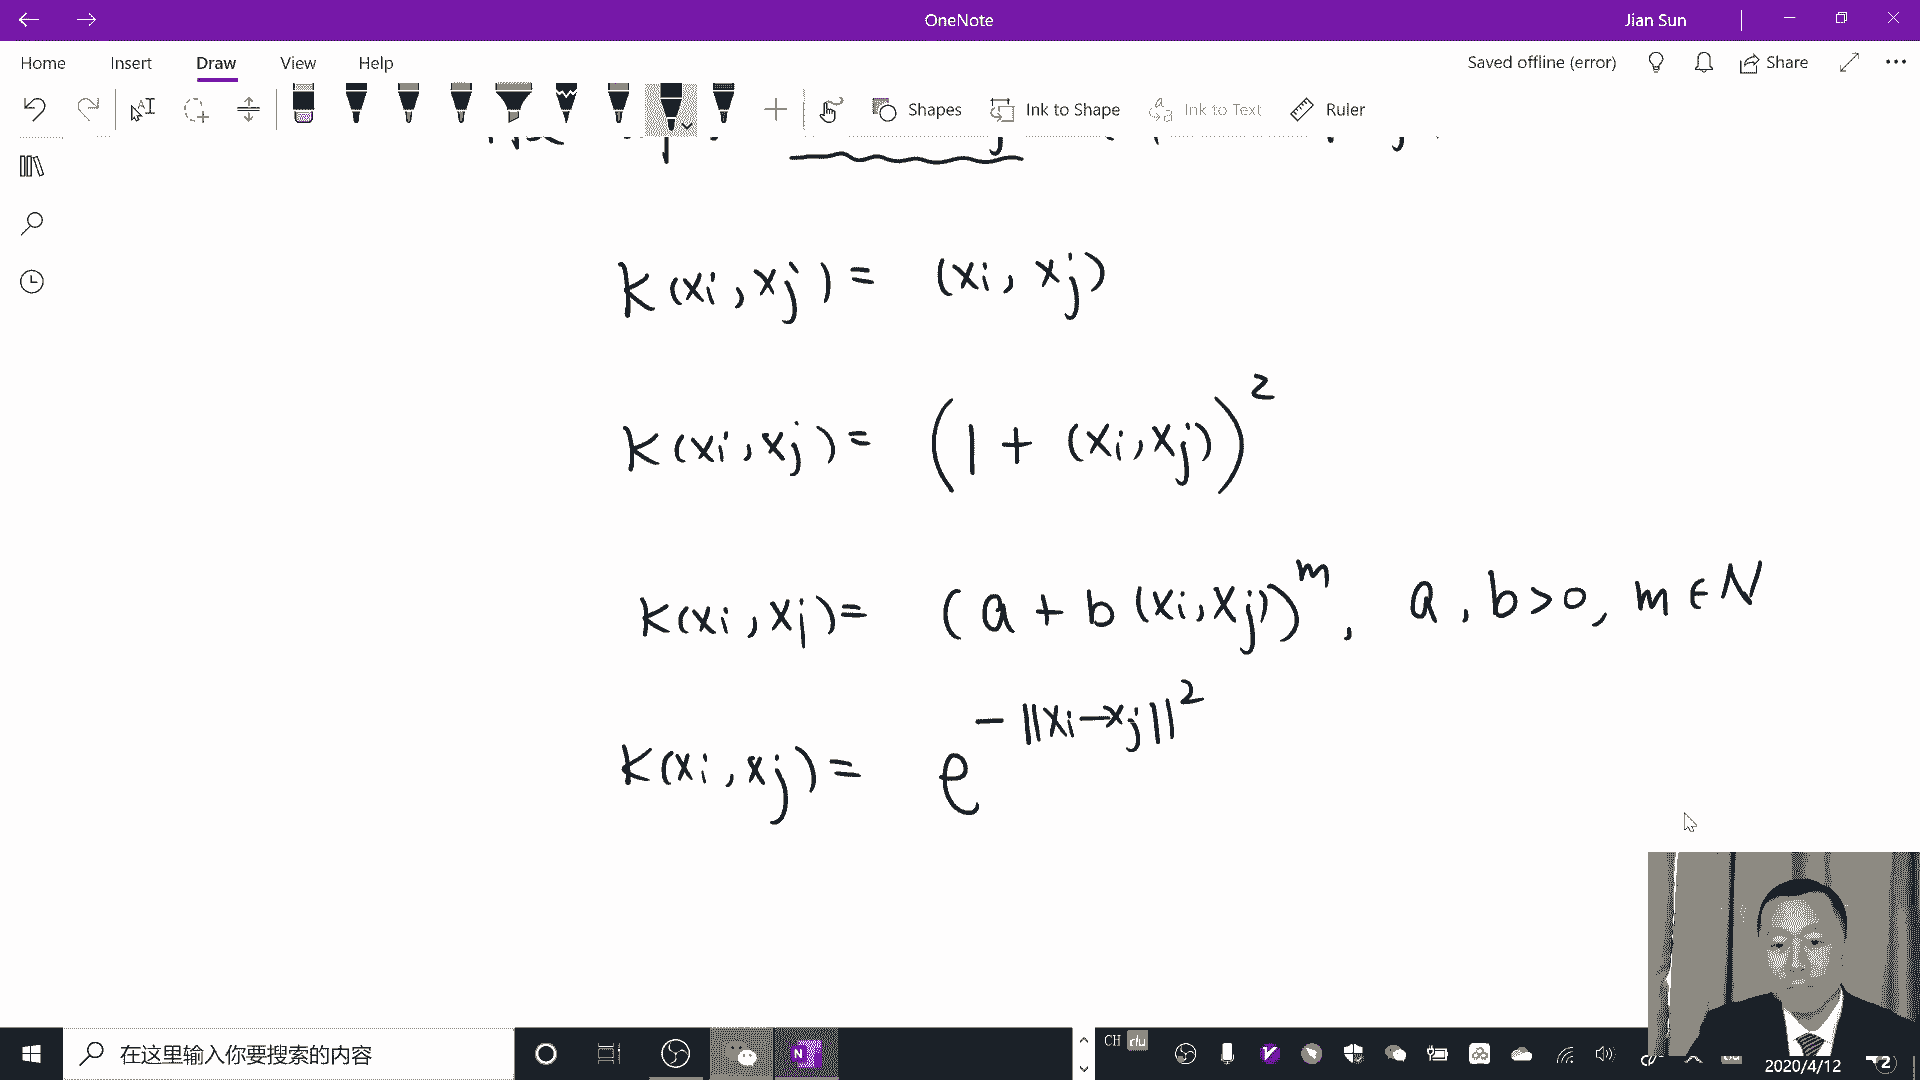 OneNote
Jian Sun
Home Insert Draw View Help
Saved offline (error)
Share
Shapes Ink to Shape Ink to Text Ruler
K(xi, xj) = (xi, xj)
K(xi, xj) = (1 + (xi, xj))²
K(xi, xj) = (a + b(xi, xj))ᵐ, a, b > 0, m ∈ N
K(xi, xj) = e^(-||xi-xj||²)
在这里输入你要搜索的内容
CH
2020/4/12
2